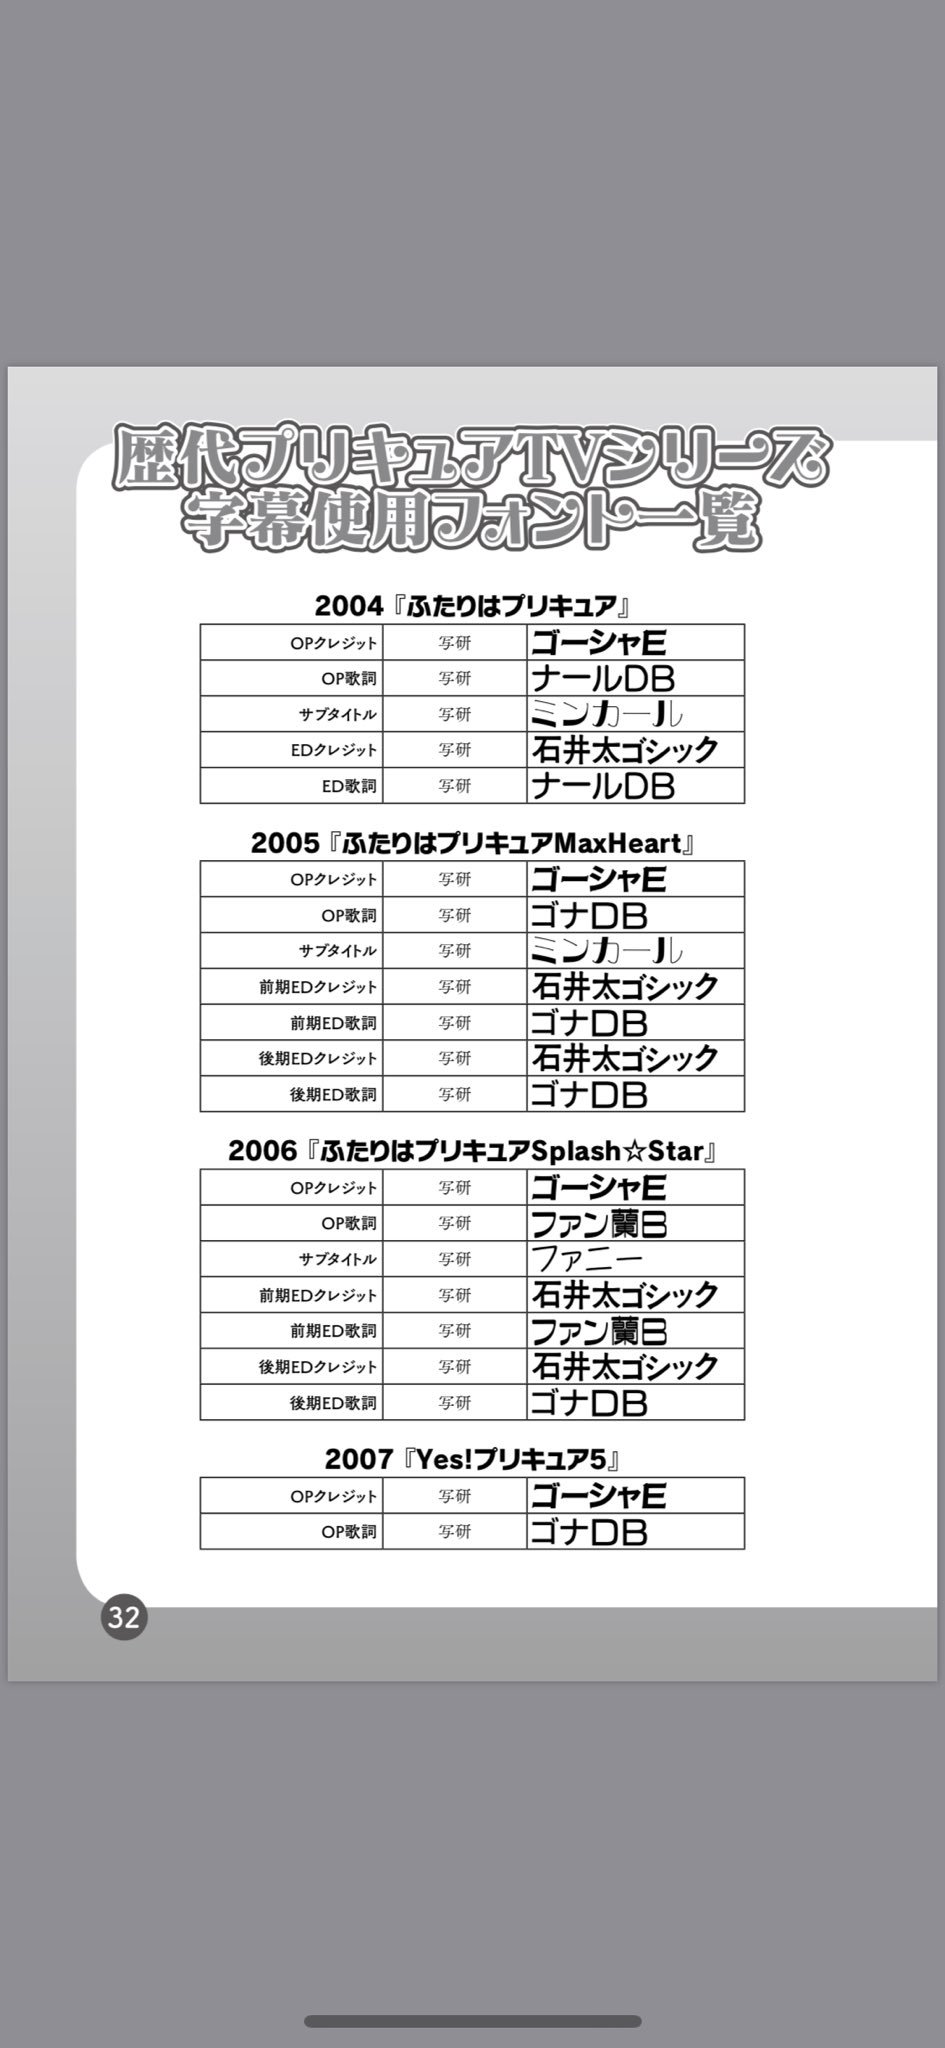 歴代プリキュアTVシリーズ
字幕使用フォント一覧
2004『ふたりはプリキュア』
OPクレジット 写研 ゴーシャE
OP歌詞 写研 ナールDB
サブタイトル 写研 ミンカール
EDクレジット 写研 石井太ゴシック
ED歌詞 写研 ナールDB
2005『ふたりはプリキュアMaxHeart』
OPクレジット 写研 ゴーシャE
OP歌詞 写研 ゴナDB
サブタイトル 写研 ミンカール
前期EDクレジット 写研 石井太ゴシック
前期ED歌詞 写研 ゴナDB
後期EDクレジット 写研 石井太ゴシック
後期ED歌詞 写研 ゴナDB
2006『ふたりはプリキュアSplash☆Star』
OPクレジット 写研 ゴーシャE
OP歌詞 写研 ファン蘭B
サブタイトル 写研 ファニー
前期EDクレジット 写研 石井太ゴシック
前期ED歌詞 写研 ファン蘭B
後期EDクレジット 写研 石井太ゴシック
後期ED歌詞 写研 ゴナDB
2007『Yes!プリキュア5』
OPクレジット 写研 ゴーシャE
OP歌詞 写研 ゴナDB
32